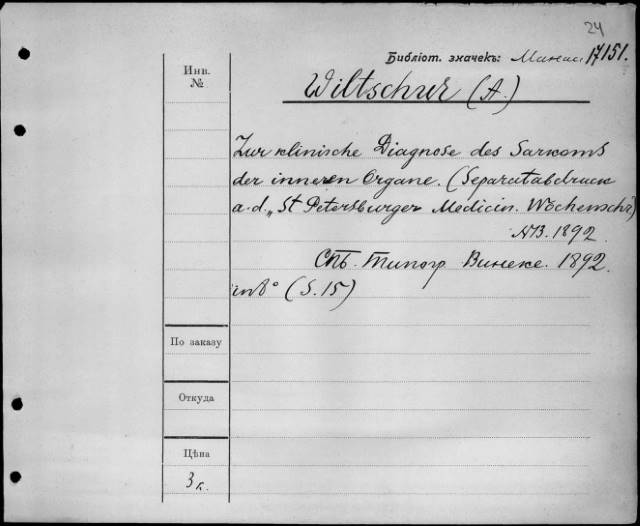 24
Библіот. значекъ: 17151.
Инв.
№
Wiltschur (A.)
Zur klinische Diagnose des Sarkoms
der inneren Organe. (Separatabdruck
a. d. „St Petersburger Medicin. Wochenschr)
1892.
Спб. Типогр Винеке. 1892.
in 8° (S. 15)
По заказу
Откуда
Цѣна
3 к.